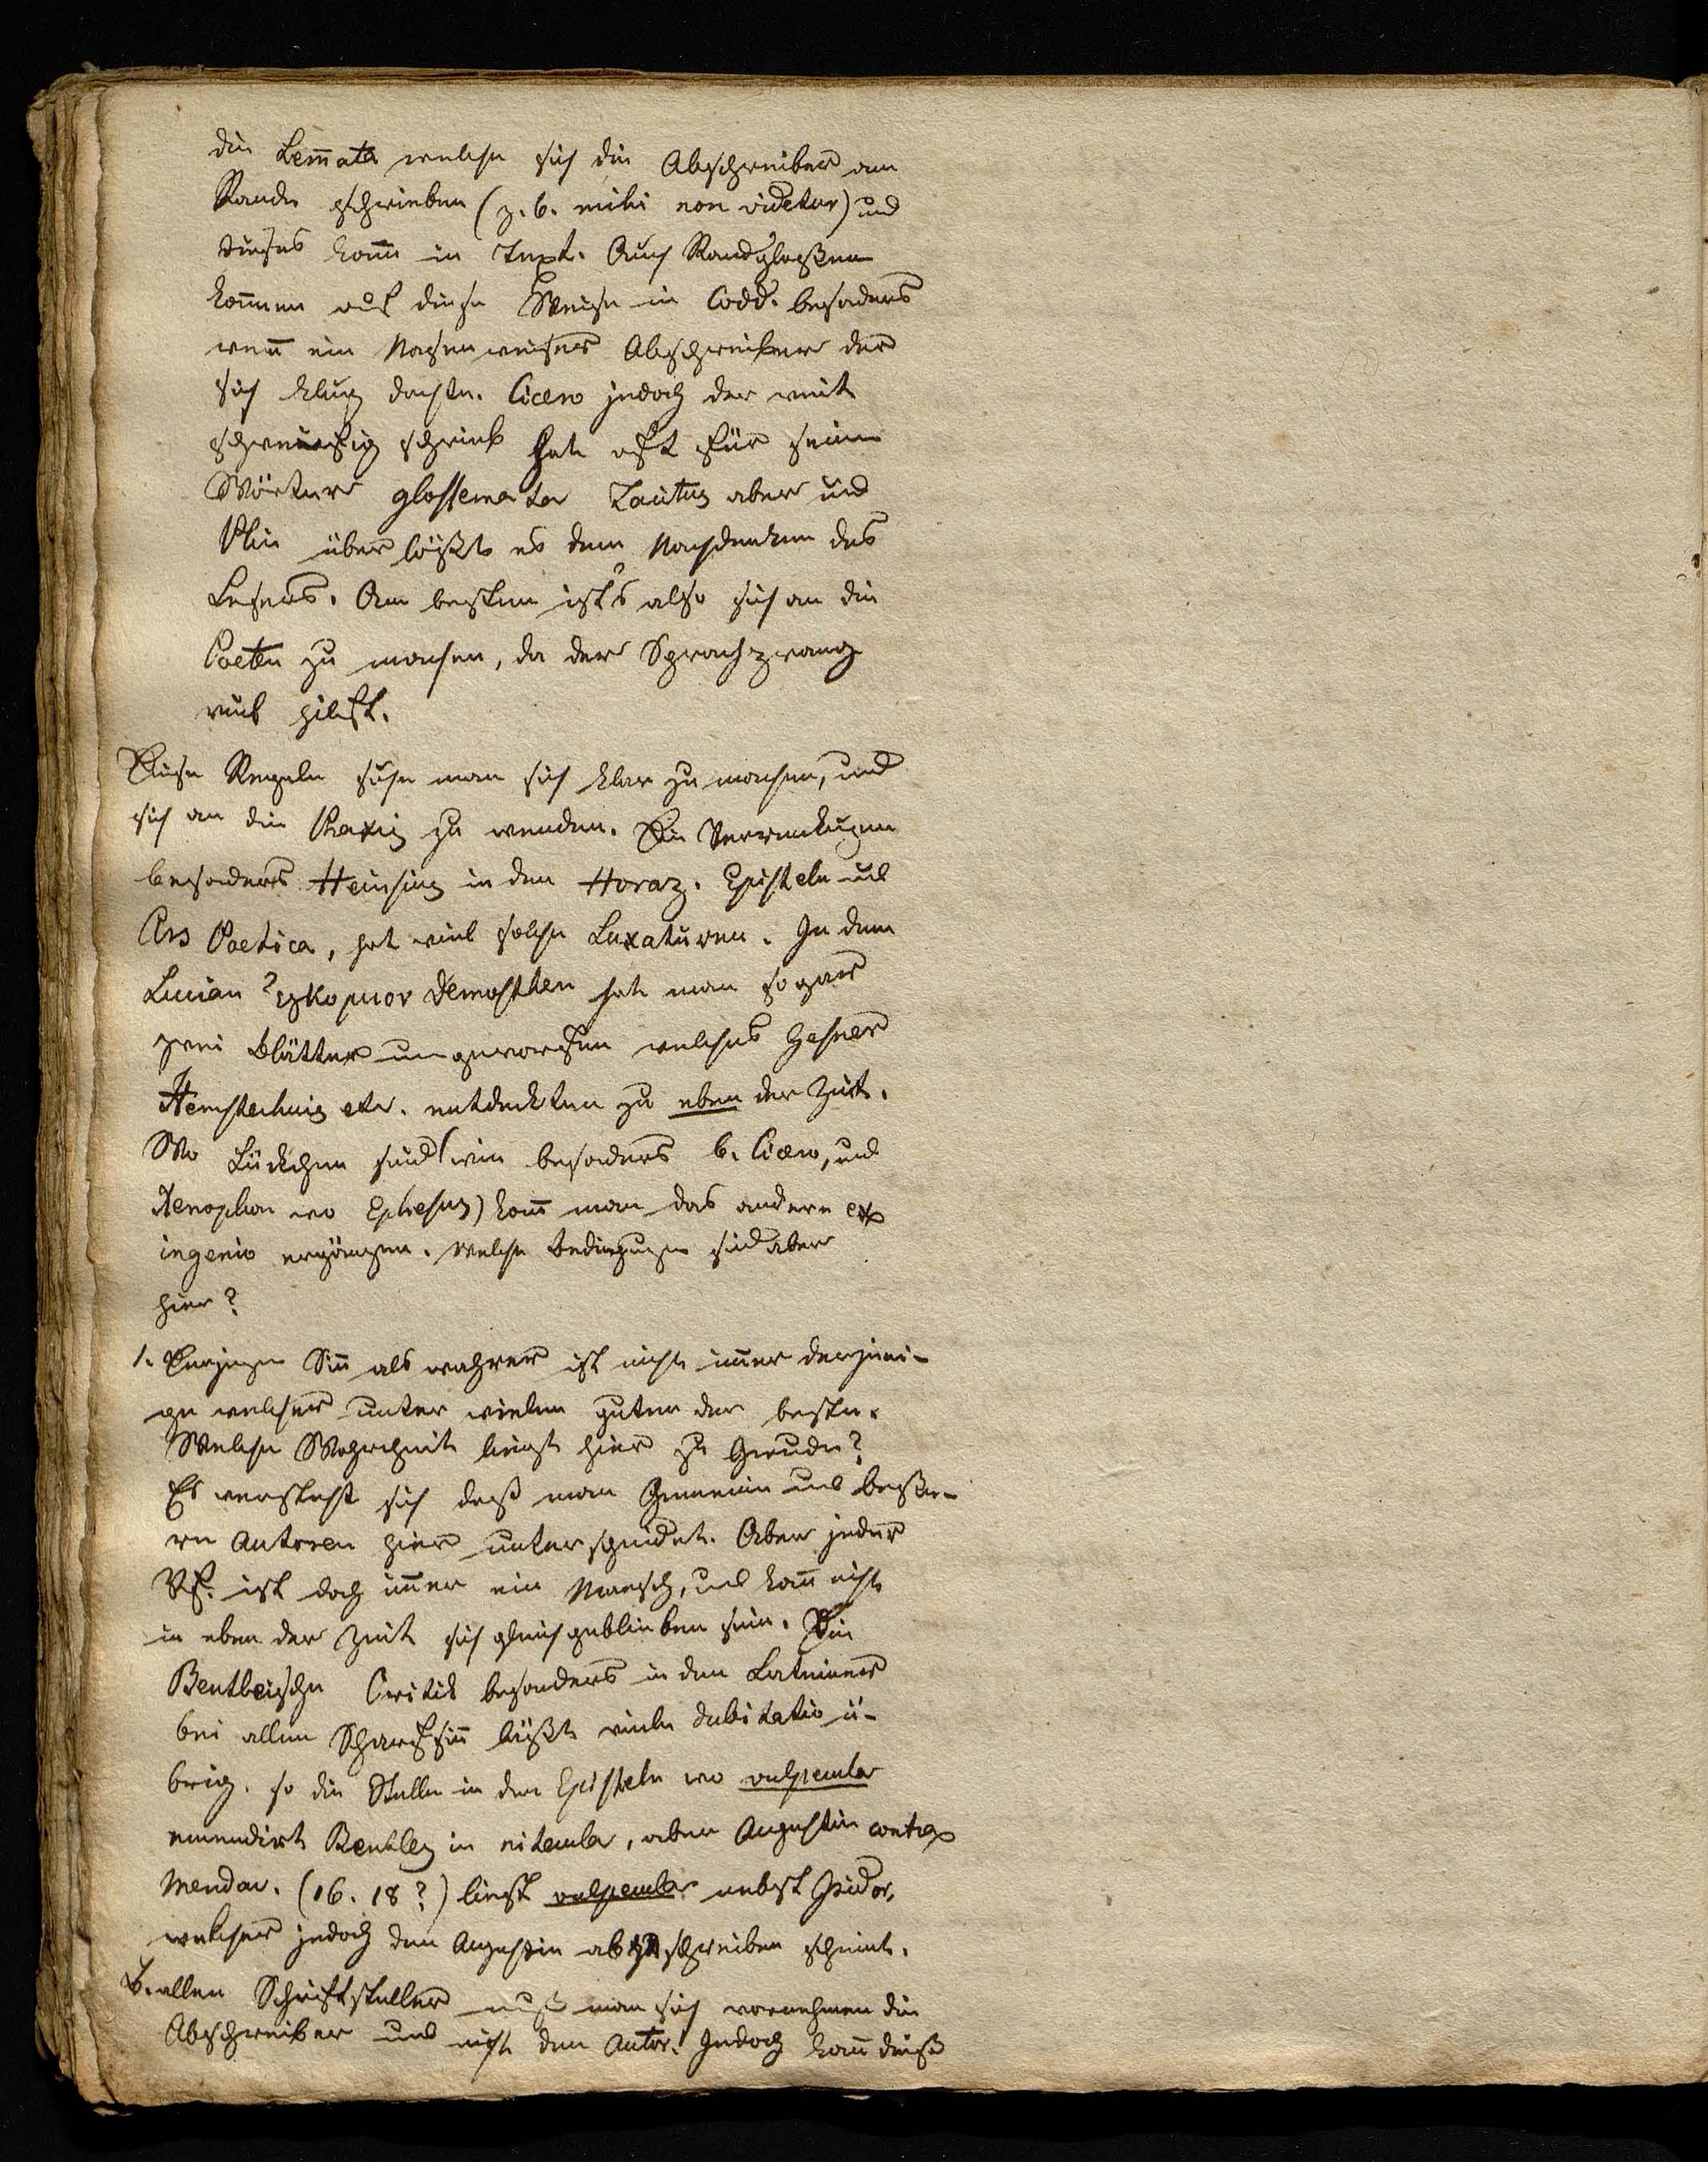 die Lem̄ata welche sich die Abschreiber am
Rande schrieben (z. b. mihi non videtur) und
dieses kom̄t in Text. Auch Randgloßen
kom̄en auf diese Weise in Codd. besonders
wen̄ ein Nasenweiser Abschreiber der
sich klug dachte. Cicero jedoch der weit
schweifig schrieb hat oft für seine
Wörter glossemata Tacitus aber und
Plin überläßts es dem Nachdenken des
Lesers. Am besten ist's also sich an die
Poeten zu machen, da der Sprachzwang
viel hilft.
Diese Regeln suche man sich klar zu machen, und
sich an die Praxis zu wenden. Die
besonders Heinsius in den Horaz. Episteln und
Ars Poetica, hat viel solche Luxaturen. In dem
Lucian Demosthen hat man sogar
zwei Blätter umgeworfen welches Gesner
Hemsterhuis etc. entdeckten zu eben der Zeit.
Wo Lückchen sind (wie besonders b. Cicero, und
Xenophon vo Ephesus) kan̄ man das andere ex
ingenio ergänzen. Welche Bedingungen sind aber
hier?
1. Derjenge Sin̄ als wahrer ist nicht im̄er derjeni-
ge welcher unter vielen guten der beste.
Welche Wahrheit liegt hier zu Grunde?
Es versteht sich daß man Gemeine und beße-
re Autoren hier unterscheidet. Aber jeder
Vf. ist doch im̄er ein Mensch, und kan̄ nicht
in eben der Zeit sich gleich geblieben sein. Die
Bentleische Critik besonders in den Lateiner
bei allem Scharfsin̄ läßt viele dubitatio ü-
brig. so die Stelle in den Episteln wo vulpecula
emendirt Bentley in nitecula, aber Augustin contra
Mendac. (16. 18?) liest vulpecula nebst Isidor,
welcher jedoch den Augustin abzuschreiben scheint.
B. allen Schriftsteller muß man sich vornehmen die
Abschreiber und nicht den Autor. Jedoch kan̄ dieß